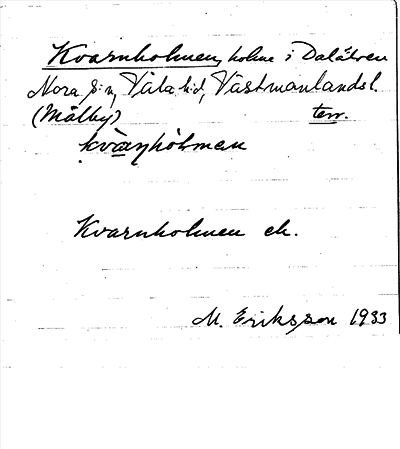 Kvarnholmen, holme i Dalälven
Nora s:n, Våla hd, Västmanlands l.
(Målby) terr.
kvàṇhòlmen
Kvarnholmen ek.
M. Eriksson 1933